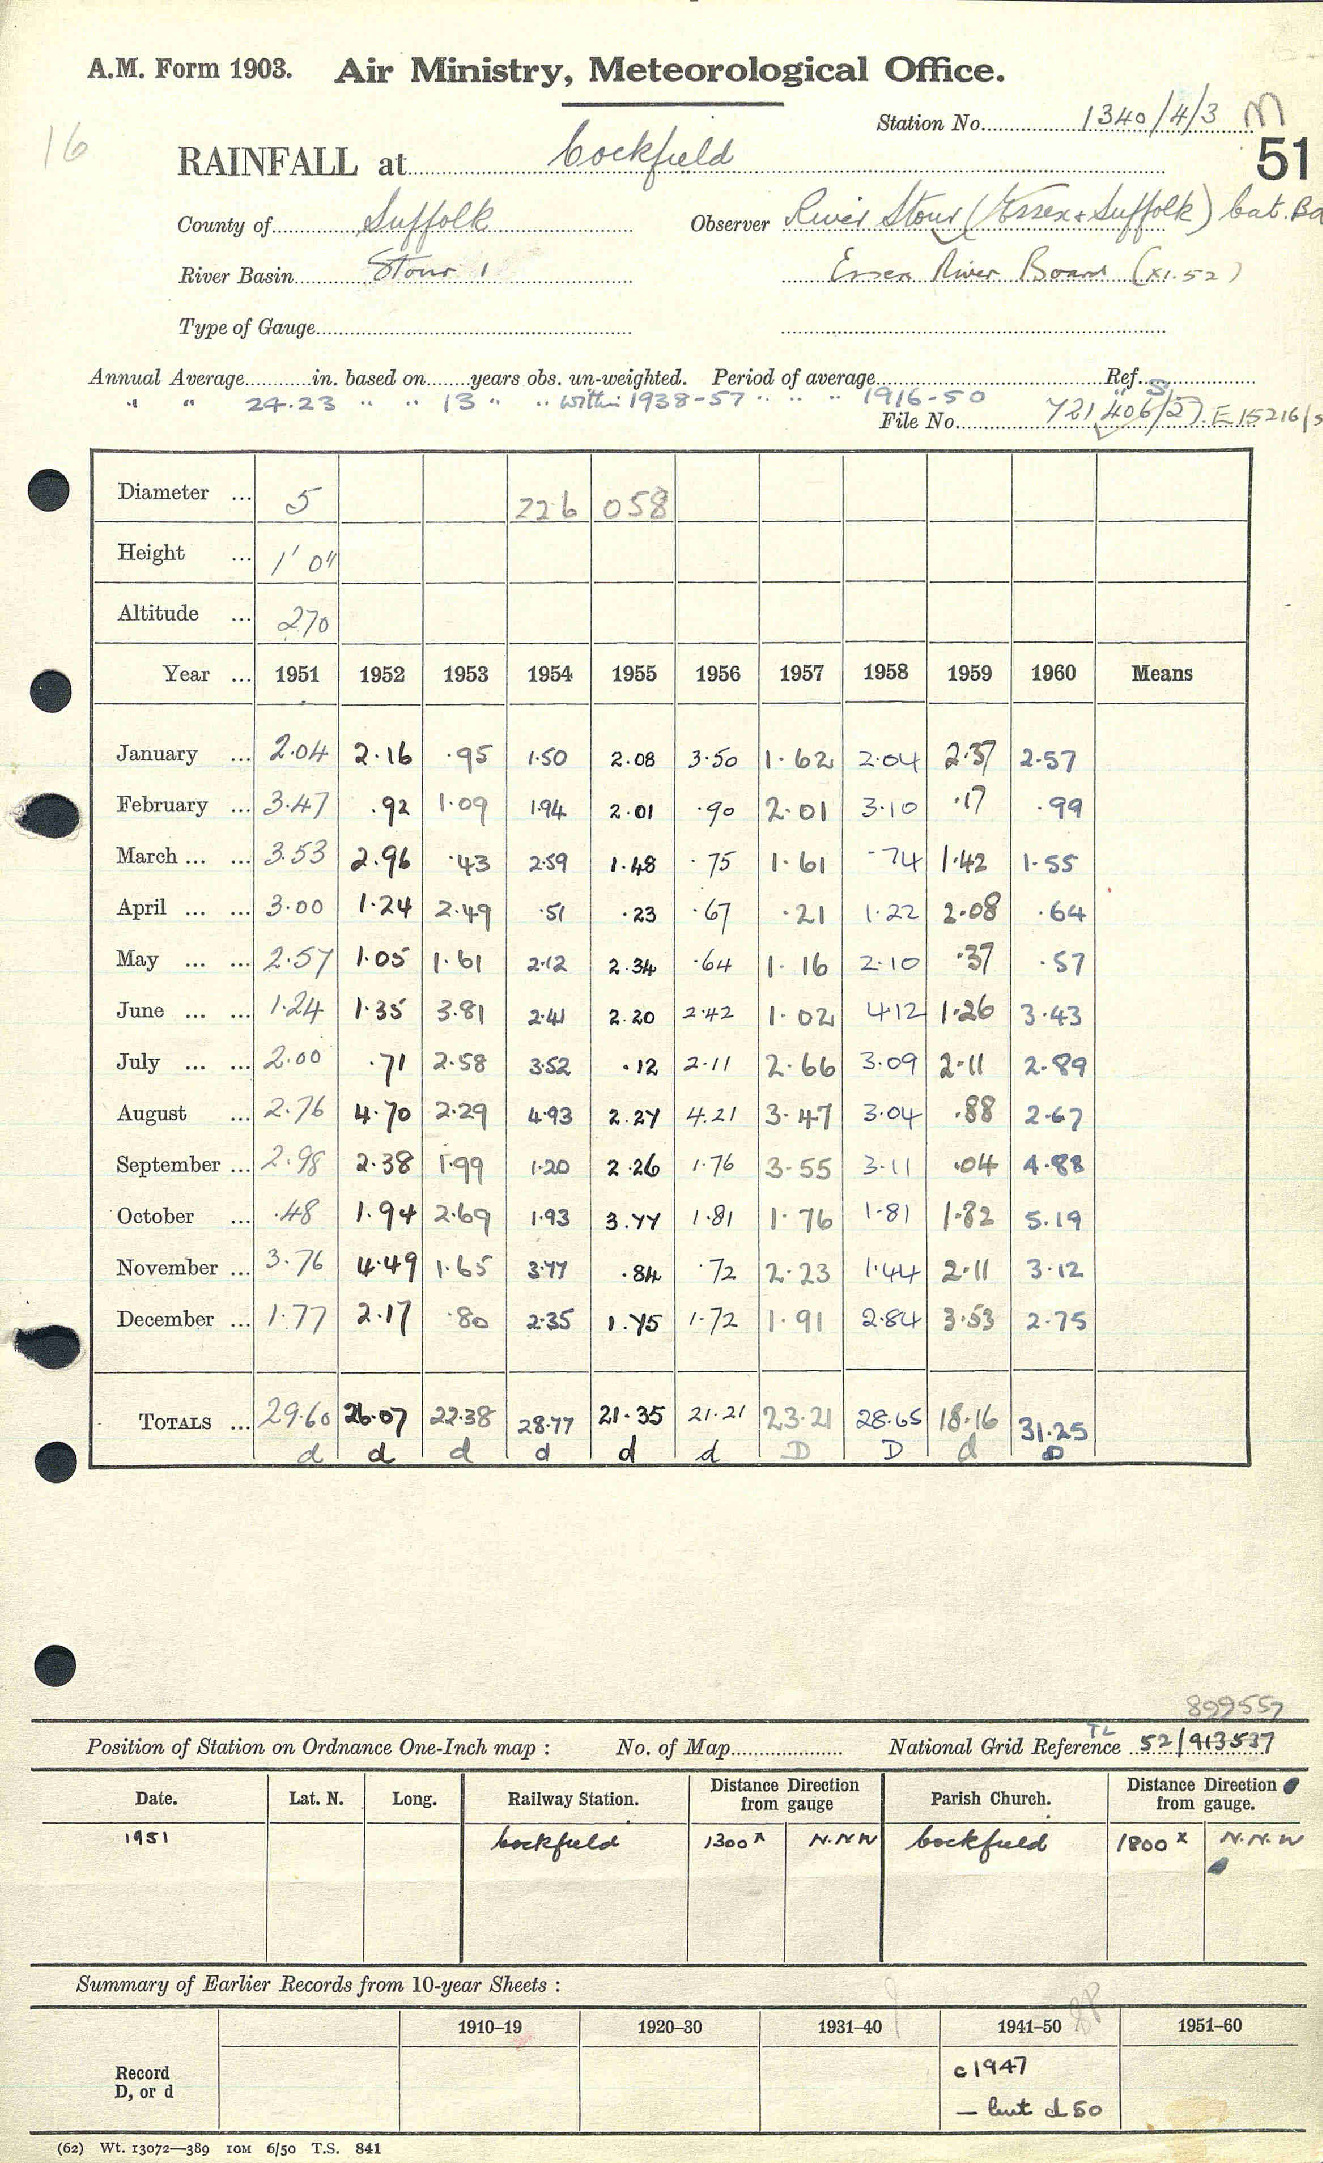 A.M. Form 1903. Air Ministry, Meteorological Office.
Station No. 1340/4/3 M
16
51
RAINFALL at Cockfield
County of Suffolk Observer River Stour (Essex & Suffolk) Cat. Bd
River Basin Stour 1 Essex River Board (XI.52)
Type of Gauge
Annual Average in. based on years obs. un-weighted. Period of average Ref. S
" " 24.23 " " 13 " " within 1938-57 " " " 1916-50
File No. 721406/57. E15216/s
Diameter ... 5 226 058
Height ... 1' 0"
Altitude ... 270
Year ... 1951 1952 1953 1954 1955 1956 1957 1958 1959 1960 Means
January ... 2.04 2.16 .95 1.50 2.08 3.50 1.62 2.04 2.37 2.57
February ... 3.47 .92 1.09 1.94 2.01 .90 2.01 3.10 .17 .99
March ... ... 3.53 2.96 .43 2.59 1.48 .75 1.61 .74 1.42 1.55
April ... ... 3.00 1.24 2.49 .51 .23 .67 .21 1.22 2.08 .64
May ... ... 2.57 1.05 1.61 2.12 2.34 .64 1.16 2.10 .37 .57
June ... ... 1.24 1.35 3.81 2.41 2.20 2.42 1.02 4.12 1.26 3.43
July ... ... 2.00 .71 2.58 3.52 .12 2.11 2.66 3.09 2.11 2.89
August ... 2.76 4.70 2.29 4.93 2.27 4.21 3.47 3.04 .88 2.67
September ... 2.98 2.38 1.99 1.20 2.26 1.76 3.55 3.11 .04 4.88
October ... .48 1.94 2.69 1.93 3.77 1.81 1.76 1.81 1.82 5.19
November ... 3.76 4.49 1.65 3.77 .84 .72 2.23 1.44 2.11 3.12
December ... 1.77 2.17 .80 2.35 1.75 1.72 1.91 2.84 3.53 2.75
TOTALS ... 29.60 26.07 22.38 28.77 21.35 21.21 23.21 28.65 18.16 31.25
d d d d d d D D d D
899557
TL
Position of Station on Ordnance One-Inch map : No. of Map National Grid Reference 52/913537
Date. Lat. N. Long. Railway Station. Distance Direction from gauge Parish Church. Distance Direction from gauge.
1951 Cockfield 1300x N.N.W Cockfield 1800x N.N.W
Summary of Earlier Records from 10-year Sheets :
1910–19 1920–30 1931–40 1941–50 1951–60
Record D, or d
c1947
— but d50
(62) Wt. 13072—389 10M 6/50 T.S. 841